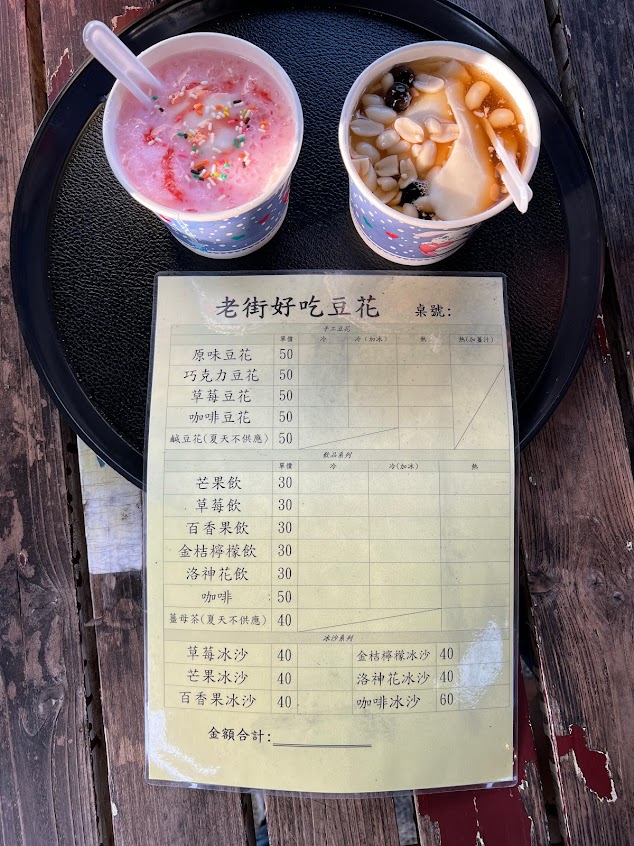 老街好吃豆花 桌號:
手工豆花
單價 冷 冷(加冰) 熱 熱(加薑汁)
原味豆花 50
巧克力豆花 50
草莓豆花 50
咖啡豆花 50
鹹豆花(夏天不供應) 50
飲品系列
單價 冷 冷(加冰) 熱
芒果飲 30
草莓飲 30
百香果飲 30
金桔檸檬飲 30
洛神花飲 30
咖啡 50
薑母茶(夏天不供應) 40
冰沙系列
草莓冰沙 40 金桔檸檬冰沙 40
芒果冰沙 40 洛神花冰沙 40
百香果冰沙 40 咖啡冰沙 60
金額合計: